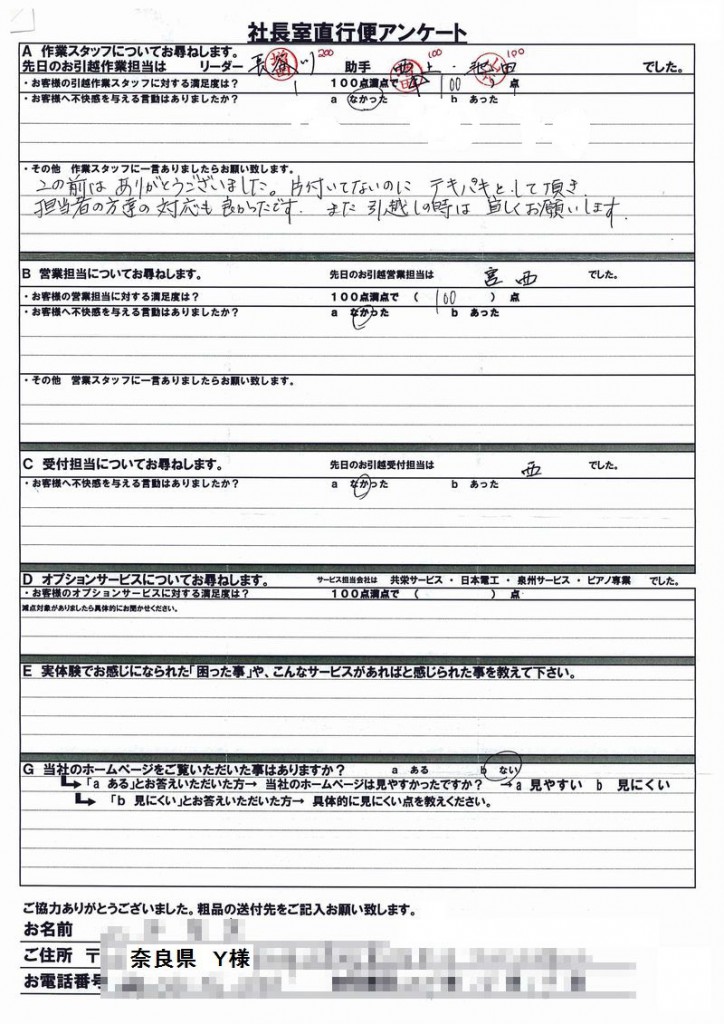 社長室直行便アンケート
A 作業スタッフについてお尋ねします。
先日のお引越作業担当は リーダー 長谷川 200 助手 西上 100 ・ 池田 100 でした。
・お客様の引越作業スタッフに対する満足度は? 100点満点で ( 100 ) 点
・お客様へ不快感を与える言動はありましたか? a なかった b あった
・その他 作業スタッフに一言ありましたらお願い致します。
この前は ありがとうございました。片付いてないのに テキパキとして頂き、
担当者の方達の対応も良かったです。また引越しの時は宜しくお願いします。
B 営業担当についてお尋ねします。 先日のお引越営業担当は 宮西 でした。
・お客様の営業担当に対する満足度は? 100点満点で ( 100 ) 点
・お客様へ不快感を与える言動はありましたか? a なかった b あった
・その他 営業スタッフに一言ありましたらお願い致します。
C 受付担当についてお尋ねします。 先日のお引越受付担当は 西 でした。
・お客様へ不快感を与える言動はありましたか? a なかった b あった
D オプションサービスについてお尋ねします。 サービス担当会社は 共栄サービス ・ 日本電工 ・ 泉州サービス ・ ピアノ専業 でした。
・お客様のオプションサービスに対する満足度は? 100点満点で ( ) 点
減点対象がありましたら具体的にお聞かせください。
E 実体験でお感じになられた「困った事」や、こんなサービスがあればと感じられた事を教えて下さい。
G 当社のホームページをご覧いただいた事はありますか? a ある b ない
「a ある」とお答えいただいた方→ 当社のホームページは見やすかったですか? →a 見やすい b 見にくい
「b 見にくい」とお答えいただいた方→ 具体的に見にくい点を教えください。
ご協力ありがとうございました。粗品の送付先をご記入お願い致します。
お名前
ご住所 〒 奈良県 Y様
お電話番号